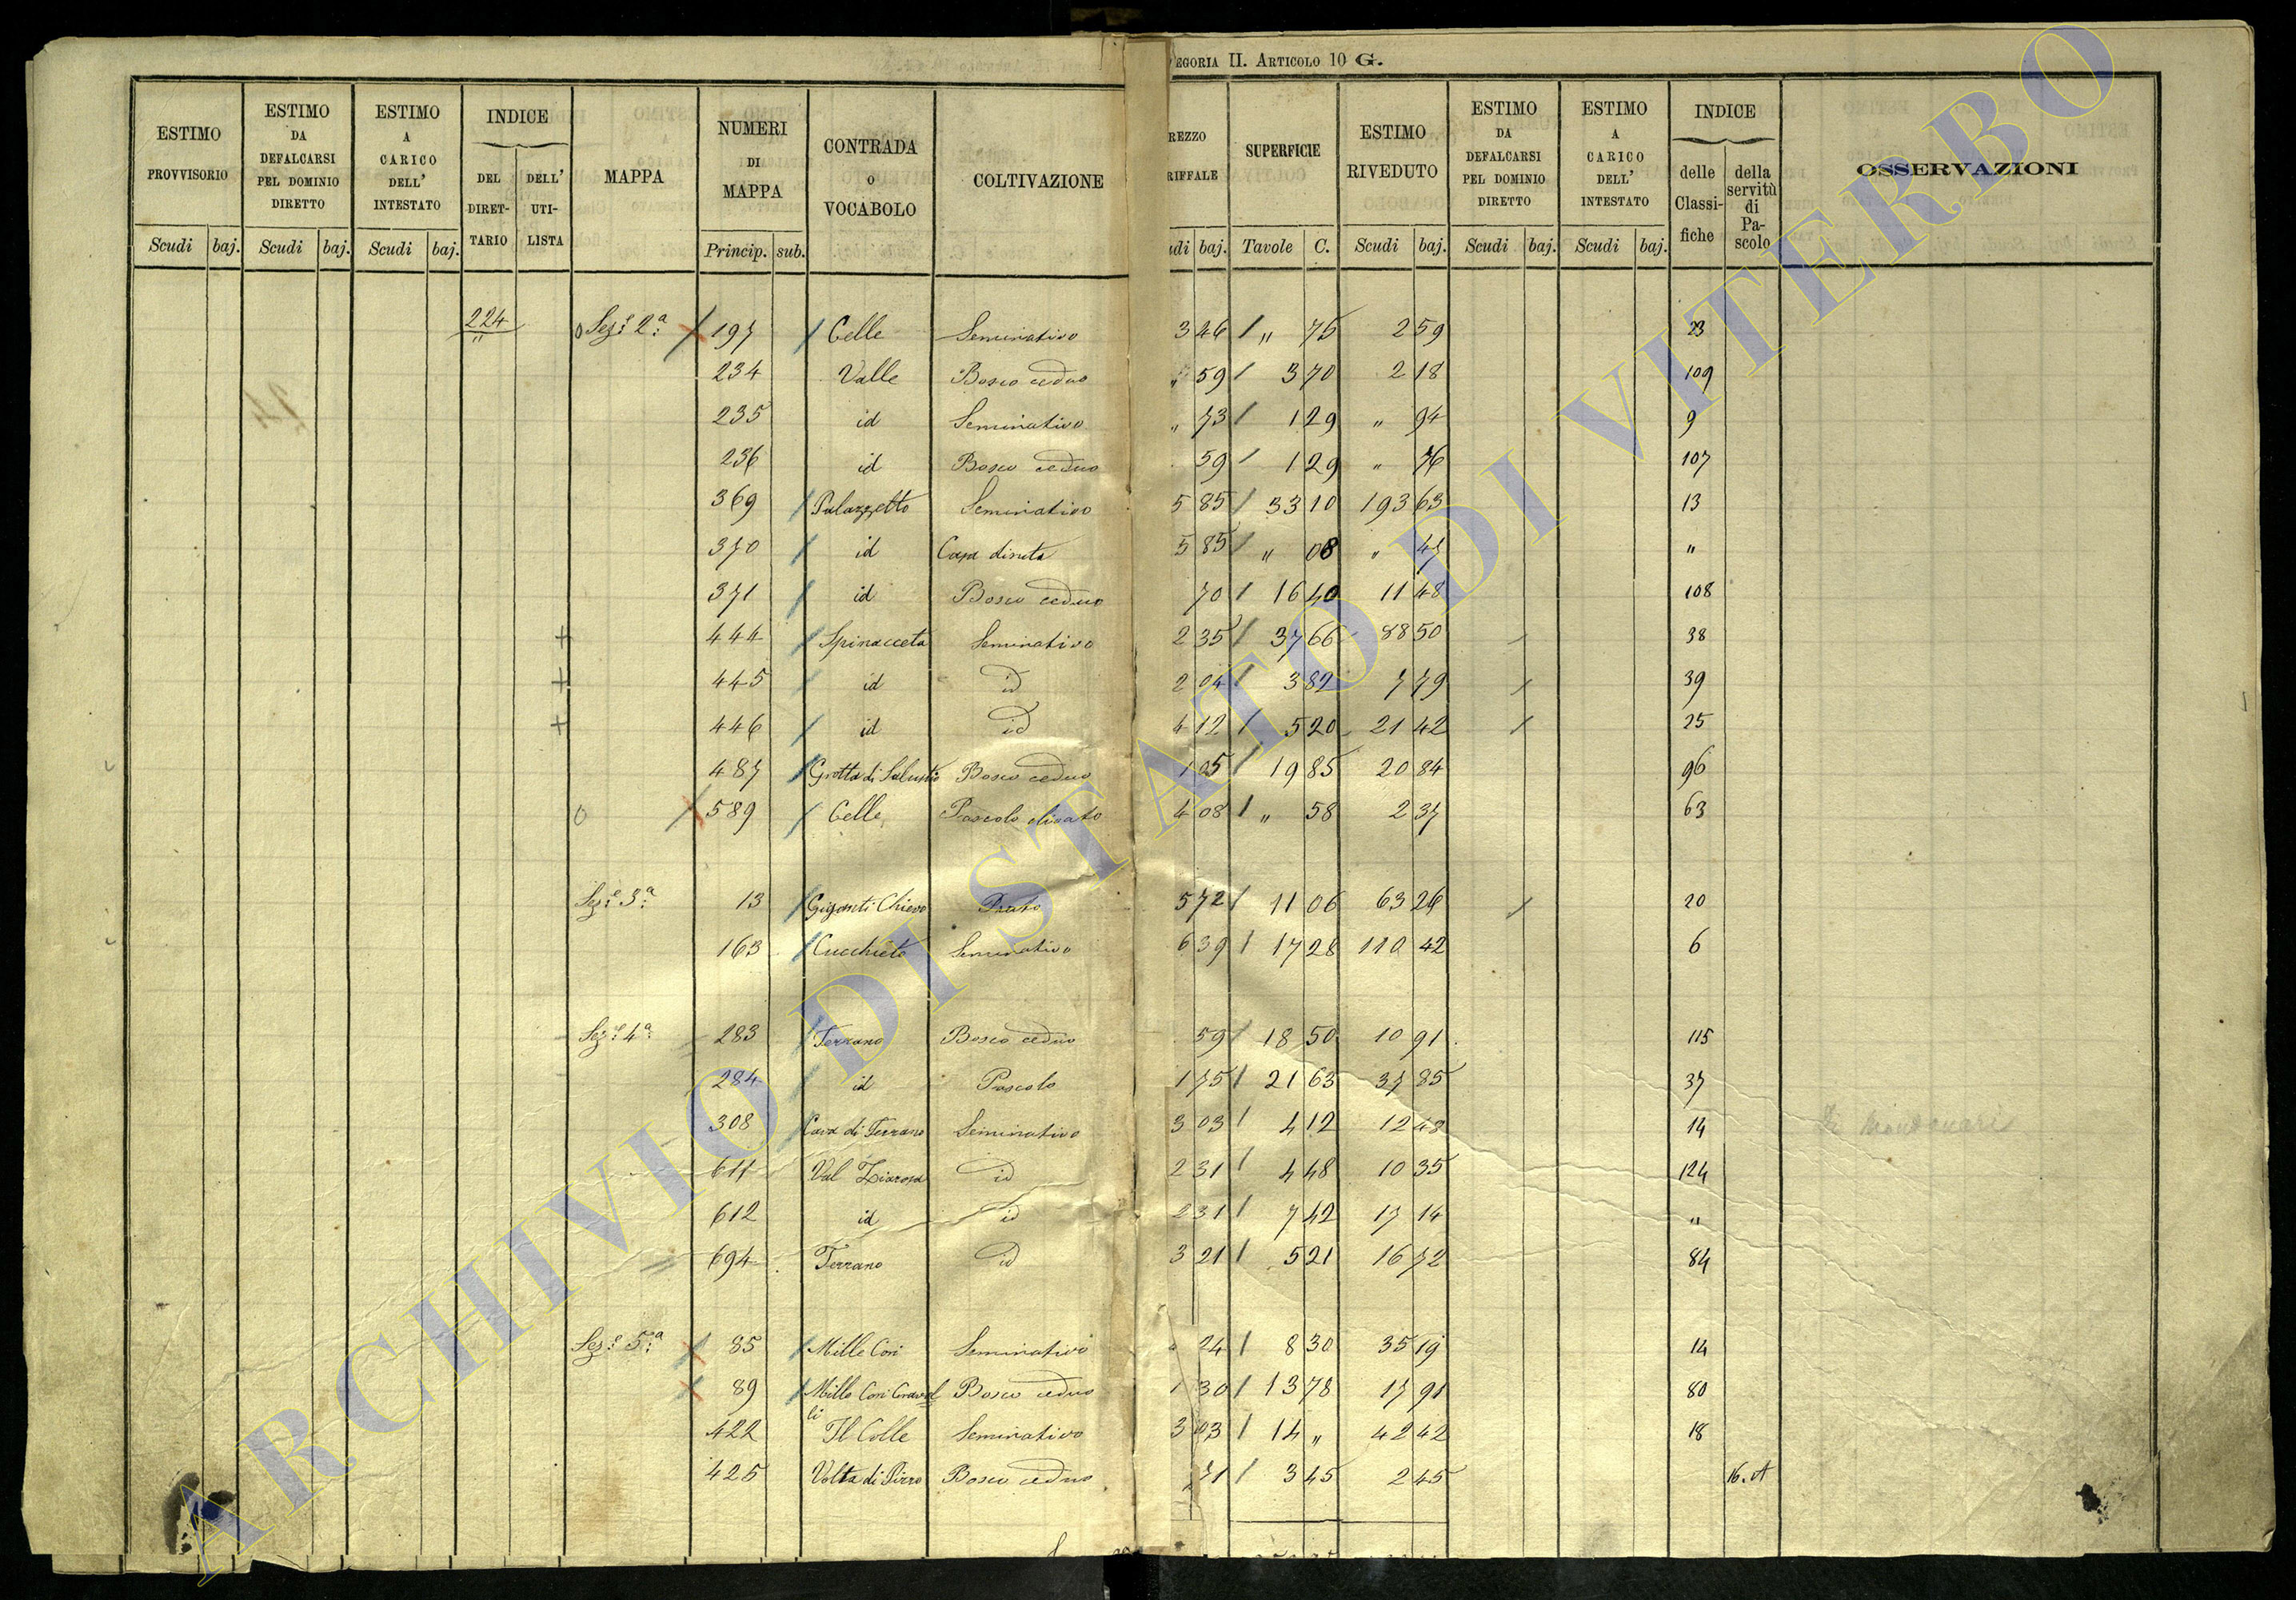 EGORIA II. ARTICOLO 10 G.
ESTIMO PROVVISORIO
ESTIMO DA DEFALCARSI PEL DOMINIO DIRETTO
ESTIMO A CARICO DELL' INTESTATO
INDICE
DEL DIRET- TARIO
DELL' UTI- LISTA
MAPPA
NUMERI DI MAPPA
CONTRADA O VOCABOLO
COLTIVAZIONE
REZZO RIFFALE
SUPERFICIE
ESTIMO RIVEDUTO
ESTIMO DA DEFALCARSI PEL DOMINIO DIRETTO
ESTIMO A CARICO DELL' INTESTATO
INDICE
delle Classi- fiche
della servitù di Pa- scolo
OSSERVAZIONI
Scudi baj. Scudi baj. Scudi baj. Princip. sub. udi baj. Tavole C. Scudi baj. Scudi baj. Scudi baj.
224 Sez.e 2.a 197 Celle Seminativo 3 46 " 75 2 59 23
234 Valle Bosco ceduo " 59 3 70 2 18 109
235 id Seminativo " 73 1 29 " 94 9
236 id Bosco ceduo 59 1 29 " 76 107
369 Palazzetto Seminativo 5 85 33 10 193 63 13
370 id Casa diruta 5 85 " 08 " 47 "
371 id Bosco ceduo 70 16 40 11 48 108
+ 444 Spinacceta Seminativo 2 35 37 66 88 50 38
+ 445 id id 2 04 3 82 7 79 39
+ 446 id id 4 12 5 20 21 42 25
487 Grotta di Salustio Bosco ceduo 1 05 19 85 20 84 96
589 Celle Pascolo olivato 4 08 " 58 2 37 63
Sez.e 3.a 13 Giganti Chievo Prato 5 72 11 06 63 26 20
163 Cucchieto Seminativo 6 39 17 28 110 42 6
Sez.e 4.a 283 Terrano Bosco ceduo 59 18 50 10 91 115
284 id Pascolo 1 75 21 63 37 85 37
308 Cava di Terrano Seminativo 3 03 4 12 12 48 14
611 Val Ziarosa id 2 31 4 48 10 35 124
612 id id 2 31 7 42 17 14 "
694 Terrano id 3 21 5 21 16 72 84
Sez.e 5.a 85 Mille Cori Seminativo 24 8 30 35 19 14
89 Mille Cori Craval Bosco ceduo 1 30 13 78 17 91 80
li
422 Il Colle Seminativo 3 03 14 " 42 42 18
425 Volta di Pirro Bosco ceduo 71 3 45 2 45 16. A
ARCHIVIO DI STATO DI VITERBO